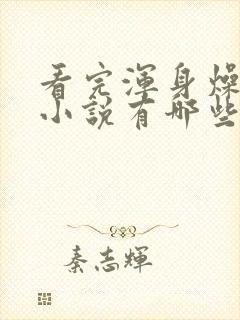 看完渾身燥
小說有哪些
秦志輝